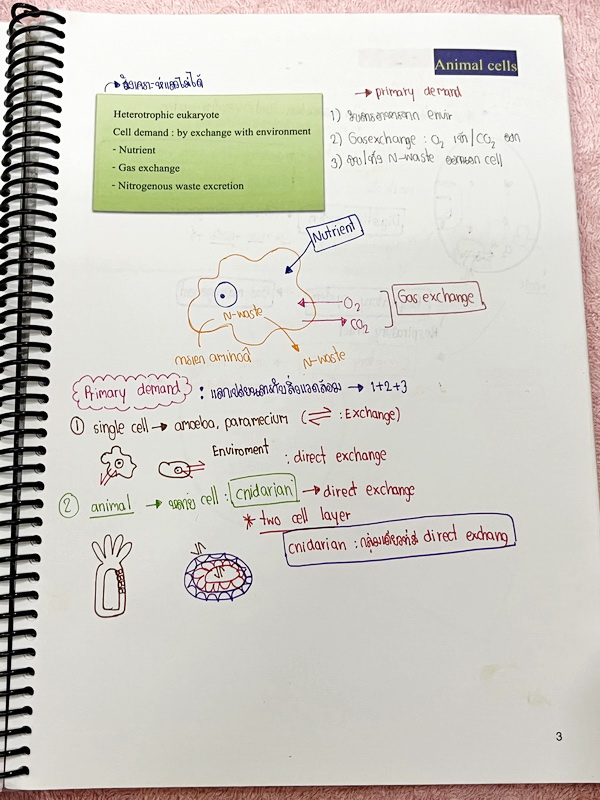 Animal cells
สังเคราะห์แสงไม่ได้
→ primary demand
Heterotrophic eukaryote
Cell demand : by exchange with environment
- Nutrient
- Gas exchange
- Nitrogenous waste excretion
1) รับสารอาหารจาก envir
2) Gas exchange : O₂ เข้า / CO₂ ออก
3) N-waste ออกนอก cell
Nutrient
O₂
CO₂
Gas exchange
N-waste
N-waste
Primary demand : แลกเปลี่ยนสารกับสิ่งแวดล้อม → 1+2+3
① single cell → amoeba, paramecium ( ⇌ : Exchange)
Enviroment : direct exchange
② animal → cell : cnidarian → direct exchange
* two cell layer
cnidarian : กลุ่มเดียวที่ direct exchang
3